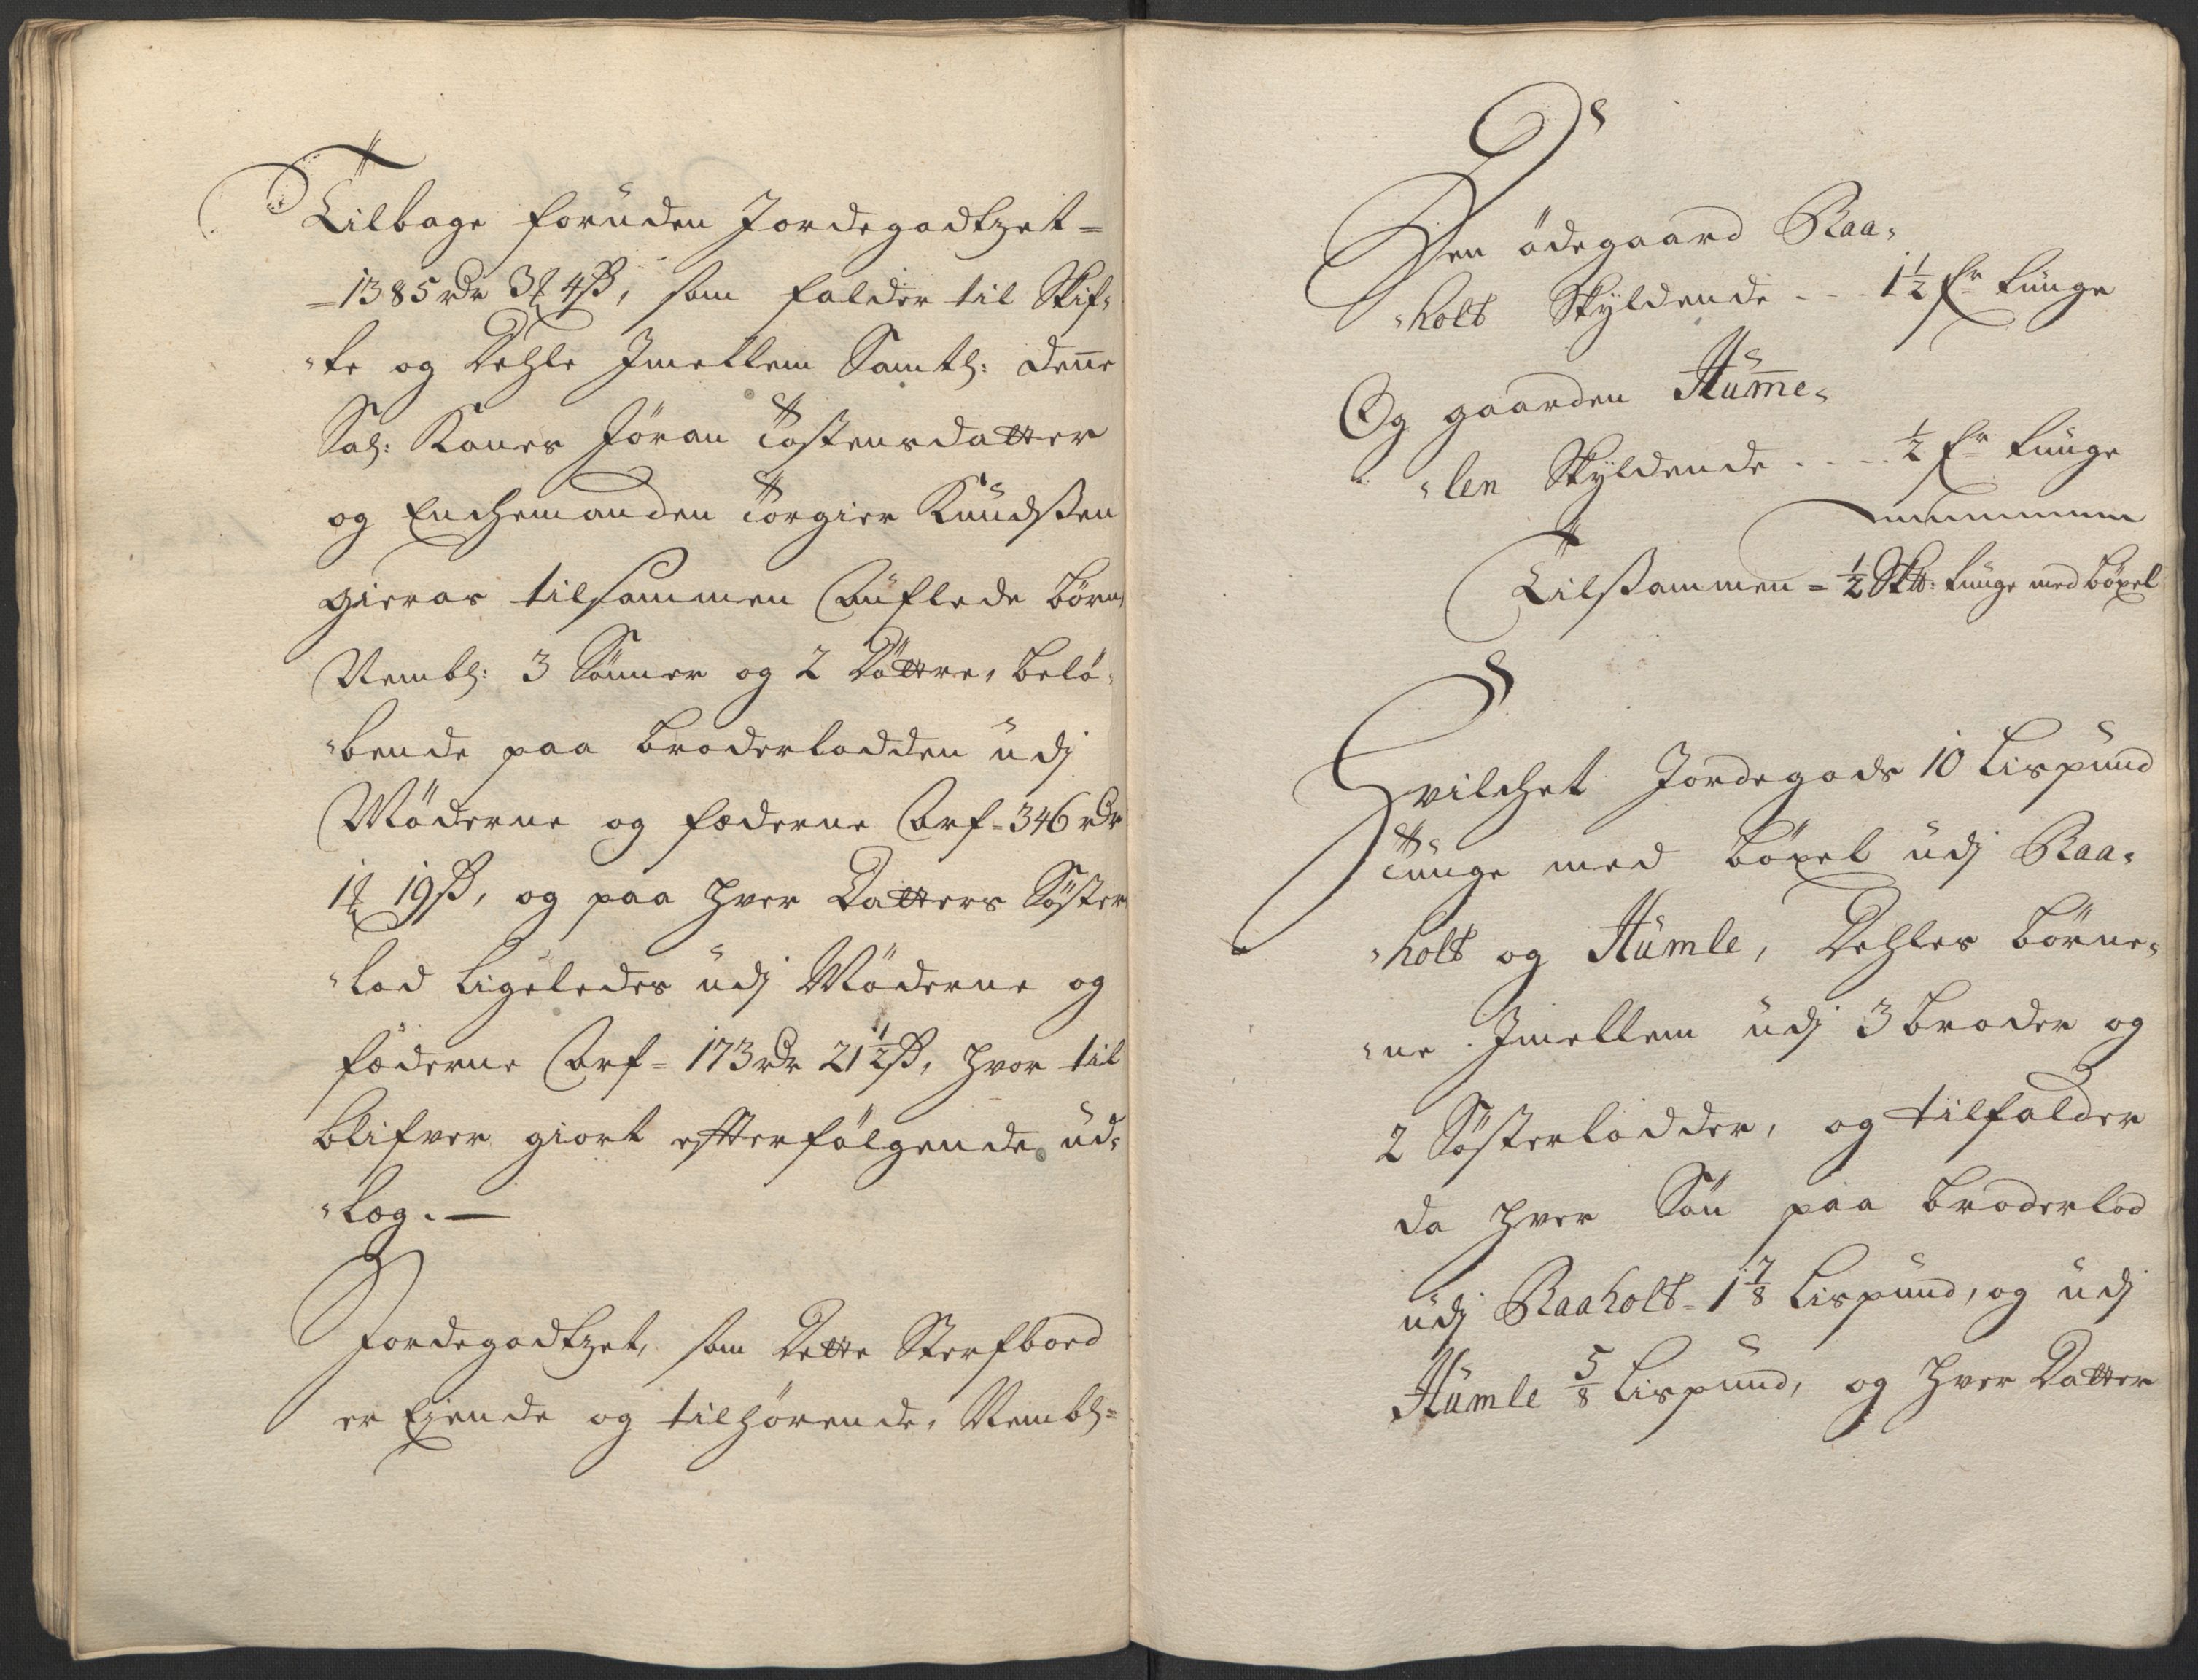 Tilbage foruden Jordegodtzet =
= 1385 rdr 3 ẜ 4 ß, som falder til Skif„
„te og Dehle Imellem Samtl: denne
Sal: Kones Jöran Tostensdatter
og Enchemanden Torgier Knudsßen
gieras tilsammen Auflede Börn,
Nembl: 3 Sönner og 2 Döttre, belö„
„bende paa broderlodden udj
Möderne og fæderne Arf = 346 rdr
1 ẜ 19 ß, og paa hver Datters Söster
„lod ligeledes udj Möderne og
fæderne Arf = 173 rdr 21½ ß, hvor til
blifver giort efterfölgende ud„
„læg. —
Jordegodtzet, som Dette Sterfboed
er Ejende og tilhörende, Nembl =
Den ödegaard Raa„
„holt Skyldende - - - 1½ fr tunge
Og gaarden Hum̄e„
„len Skyldende - - - - ½ fr tunge
Tilsammen = ½ Sktt: tunge med böxel
Hvilchet Jordegods 10 Lispund
Tunge med böxel udj Raa„
„holt og Humle, Dehles börne„
„ne Imellem udj 3 broder og
2 Sösterlodder, og tilfalder
da hver Sön paa broderlod
udj Raaholt = 1⅞ Lispund, og udj
Humle ⅝ Lispund, og hver Datter